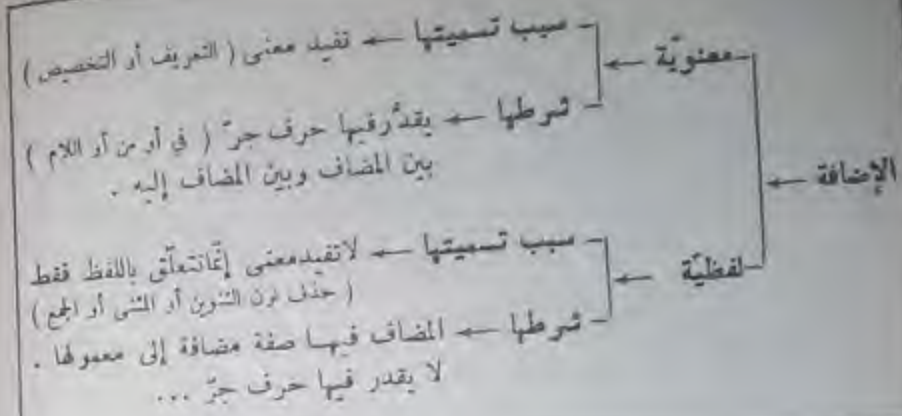 الإضافة
- معنويّة
- سبب تسميتها ← تفيد معنى ( التعريف أو التخصيص )
- شرطها ← يقدَّر فيها حرف جرّ ( في أو من أو اللام )
بين المضاف وبين المضاف إليه .
- لفظيّة
- سبب تسميتها ← لاتفيدمعنى إنّماتتعلّق باللفظ فقط
( حذف نون التنوين أو المثنى أو الجمع )
- شرطها ← المضاف فيها صفة مضافة إلى معمولها .
لا يقدر فيها حرف جرّ ...